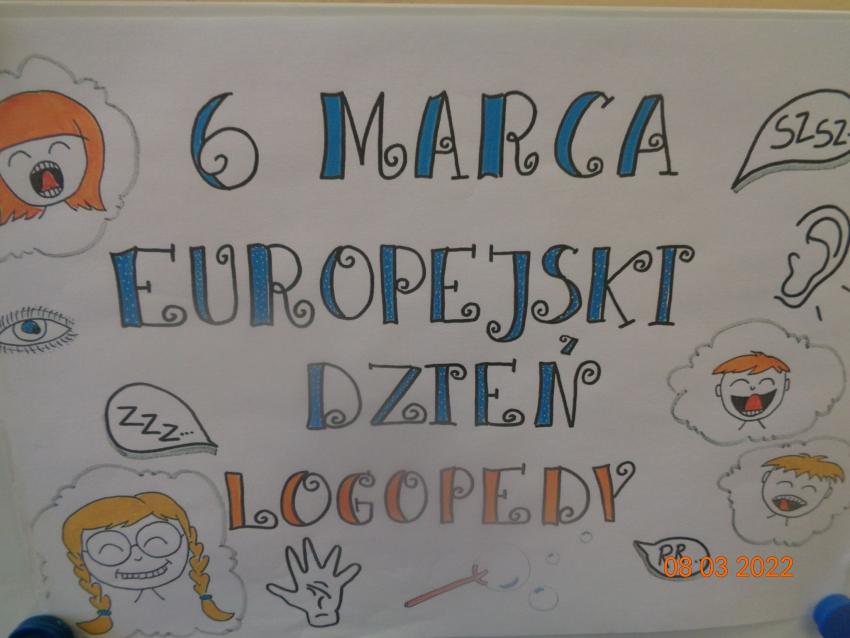 6 MARCA
SZSZ-
EUROPEJSKI
DZIEŃ
ZZZ...
LOGOPEDY
PR
08 03 2022